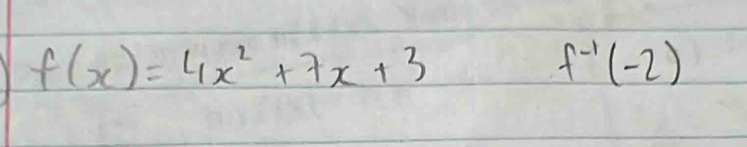 ) f(x) = 4x² + 7x + 3 f⁻¹(-2)